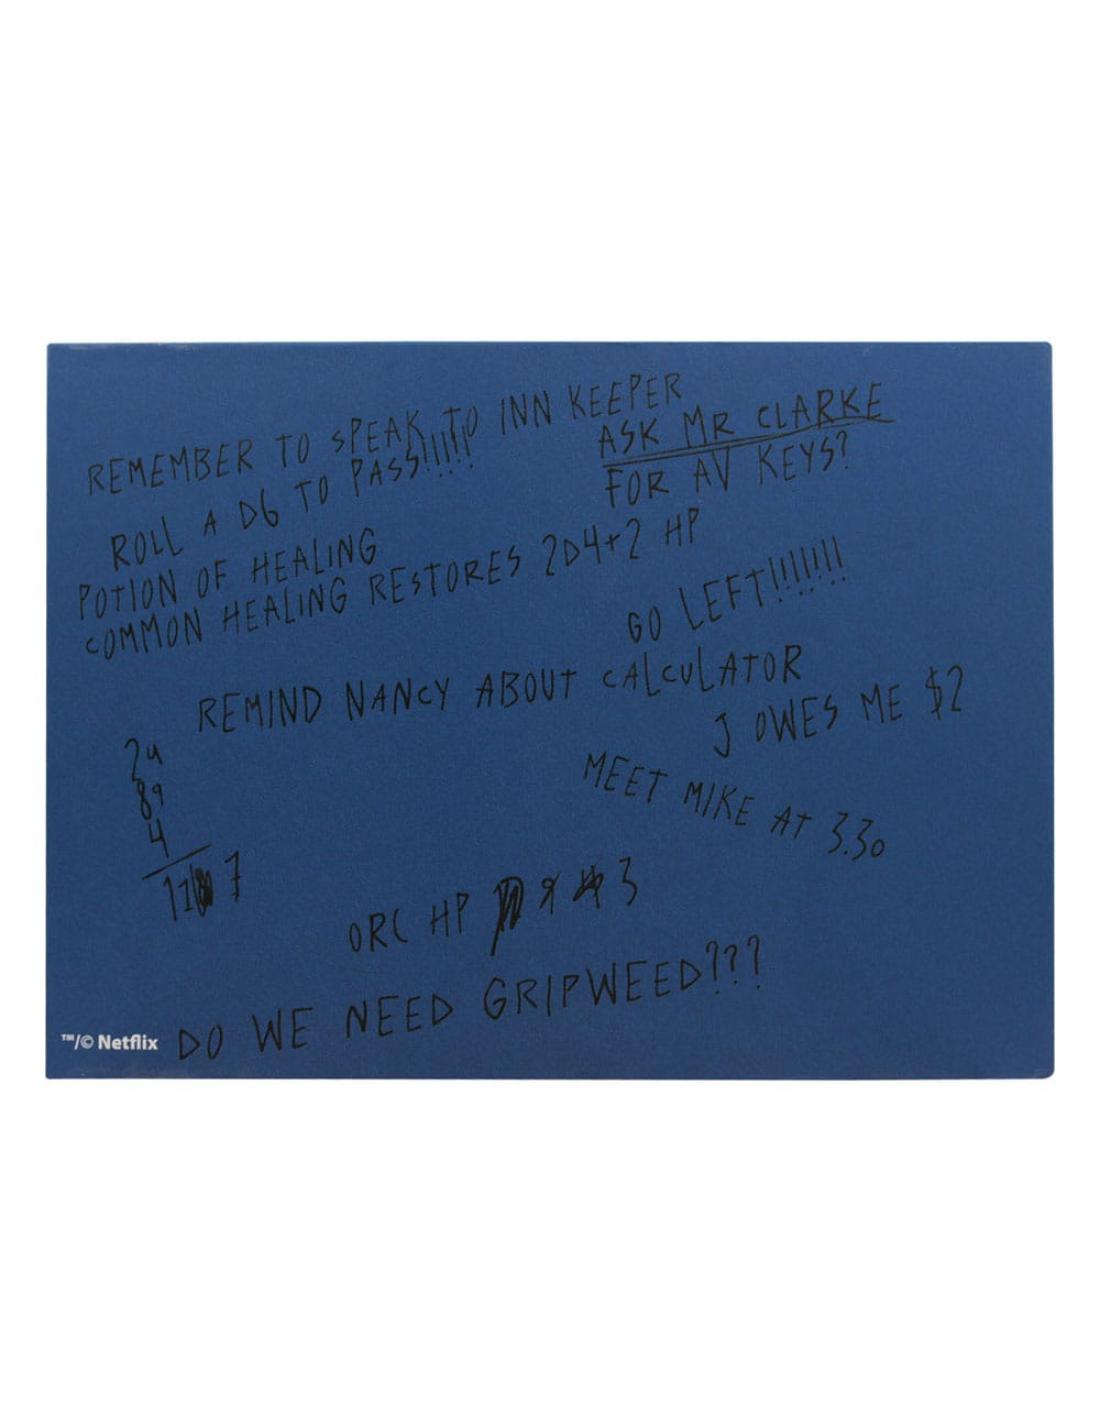 REMEMBER TO SPEAK TO INN KEEPER
ASK MR CLARKE
FOR AV KEYS?
ROLL A D6 TO PASS!!!!!
POTION OF HEALING
COMMON HEALING RESTORES 2D4+2 HP
GO LEFT!!!!!!!
REMIND NANCY ABOUT CALCULATOR
J OWES ME $2
MEET MIKE AT 3.30
24
89
4
11 7
ORC HP 9 3
DO WE NEED GRIPWEED???
™/© Netflix